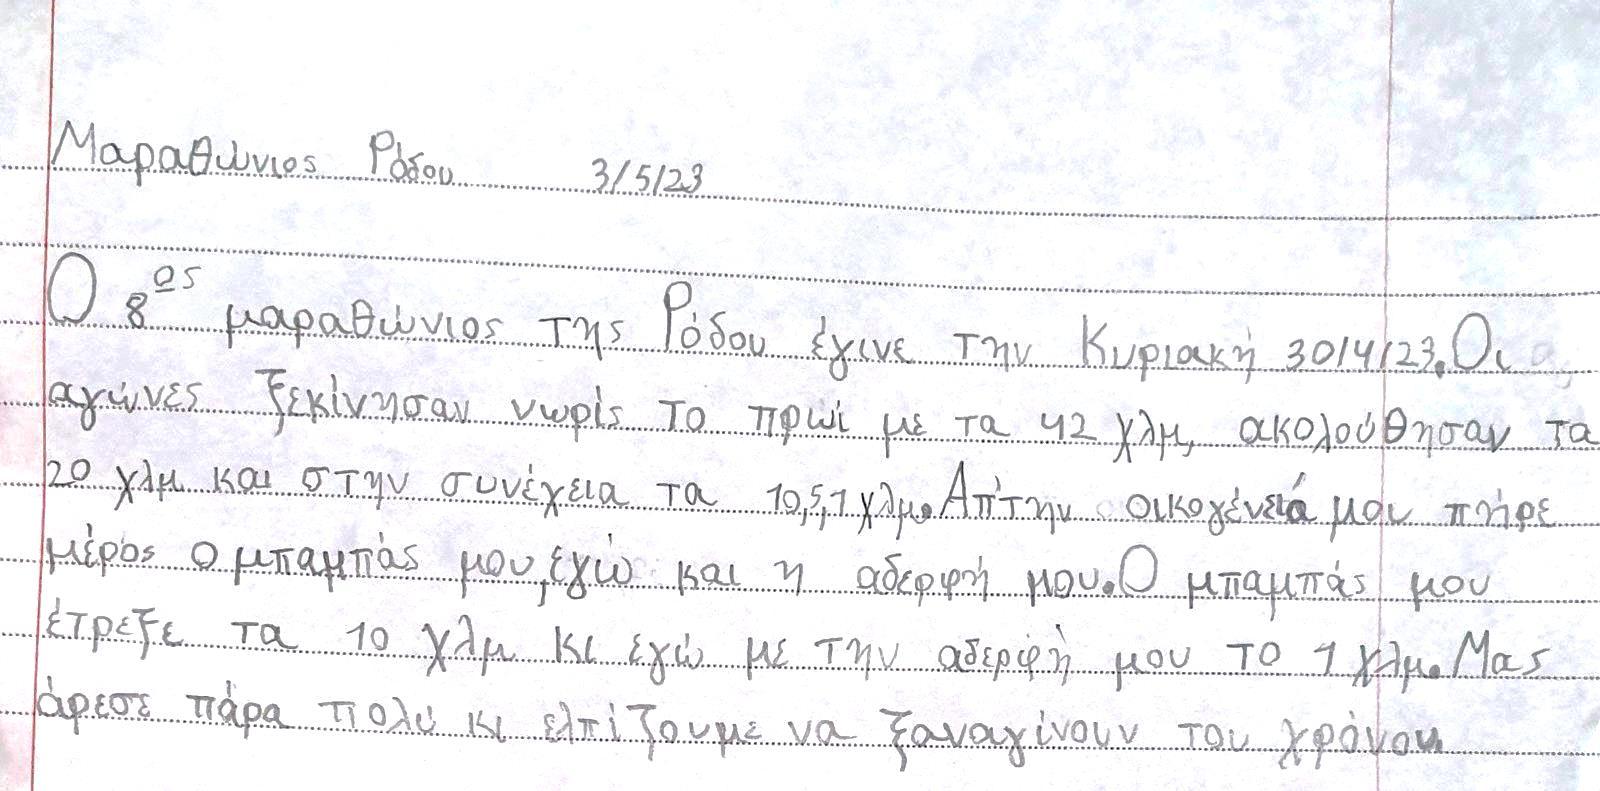 Μαραθώνιος Ρόδου 3/5/23
Ο 8ος μαραθώνιος της Ρόδου έγινε την Κυριακή 30/4/23. Οι
αγώνες ξεκίνησαν νωρίς το πρωί με τα 42 χλμ, ακολούθησαν τα
20 χλμ και στην συνέχεια τα 10,5,1 χλμ. Απ'την οικογένειά μου πήρε
μέρος ο μπαμπάς μου, εγώ και η αδερφή μου. Ο μπαμπάς μου
έτρεξε τα 10 χλμ κι εγώ με την αδερφή μου το 1 χλμ. Μας
άρεσε πάρα πολύ κι ελπίζουμε να ξαναγίνουν του χρόνου